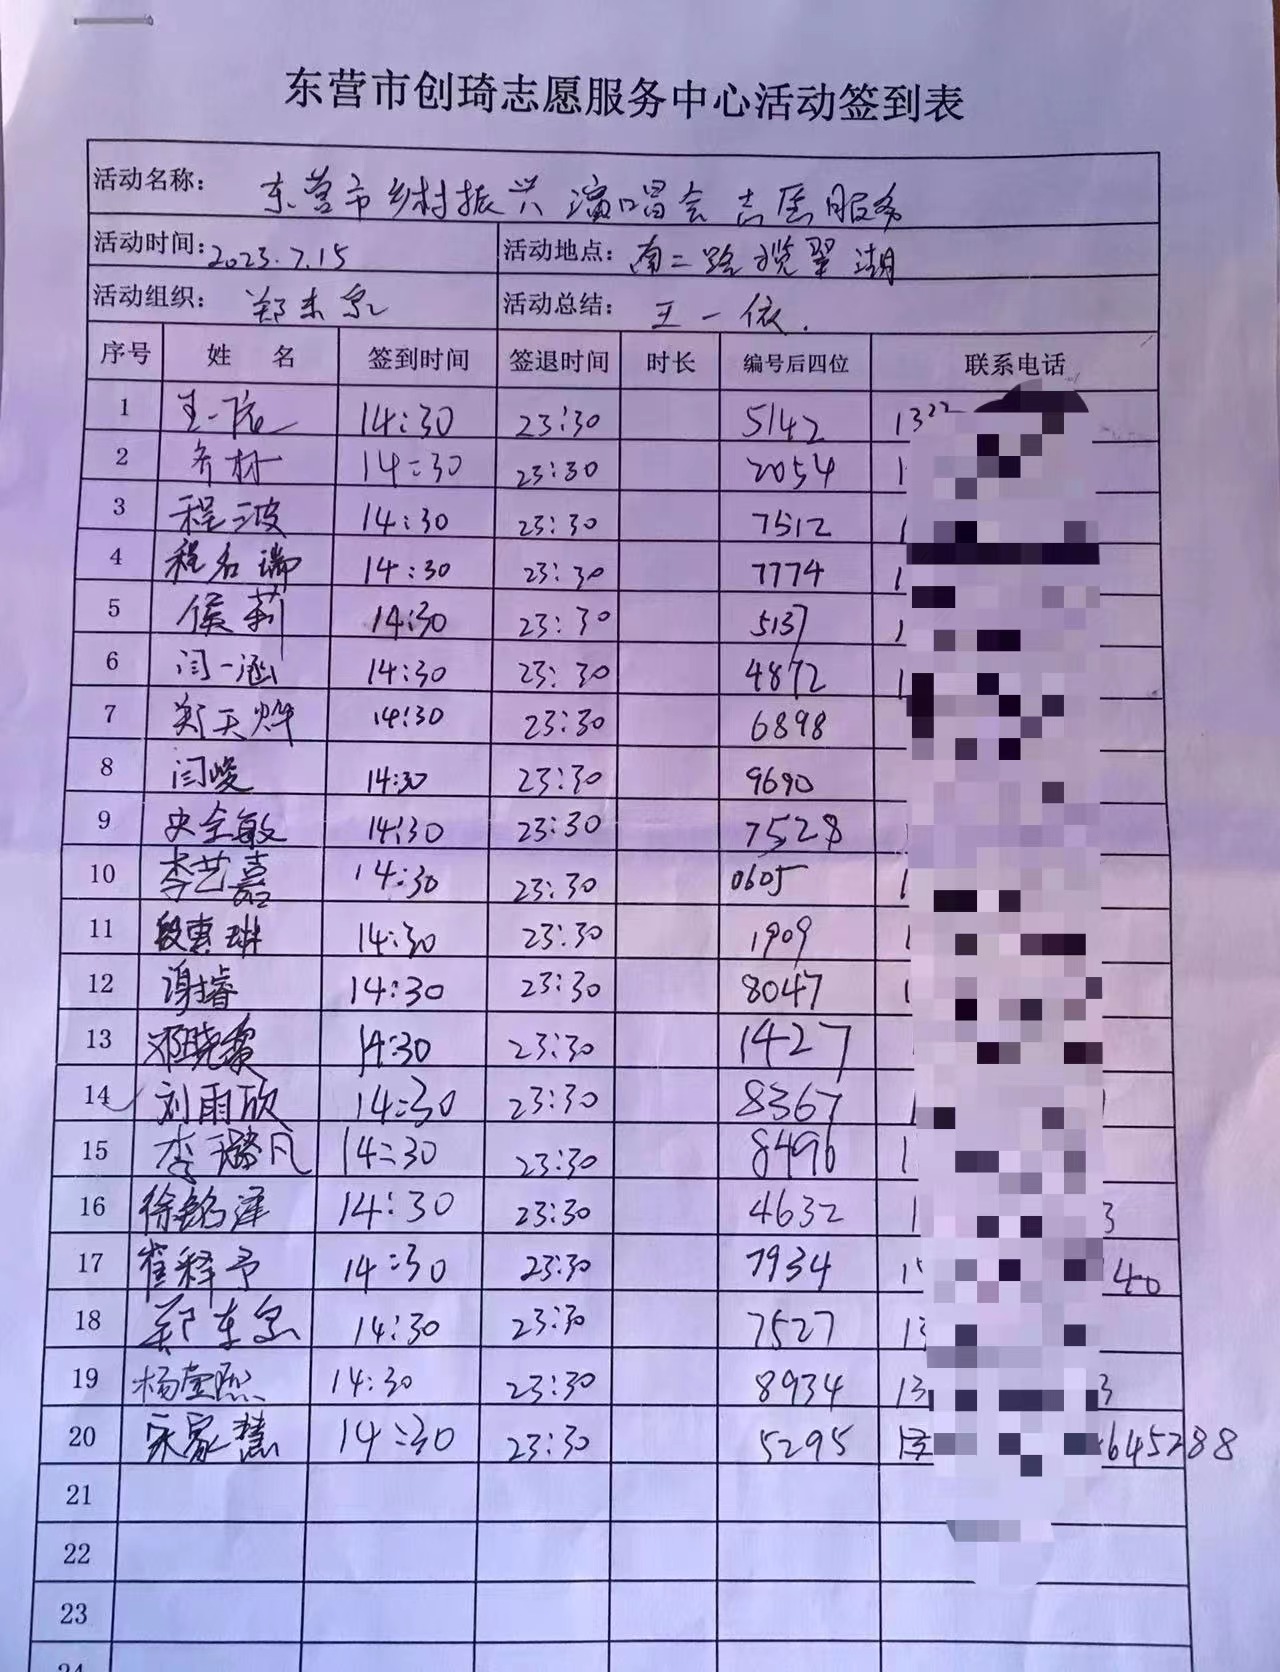 东营市创琦志愿服务中心活动签到表
活动名称： 东营市乡村振兴演唱会志愿服务
活动时间：2023.7.15 活动地点：南二路揽翠湖
活动组织： 郑东泉 活动总结： 王一依.
序号 姓 名 签到时间 签退时间 时长 编号后四位 联系电话
1 王一依 14:30 23:30 5142 1322
2 齐林 14:30 23:30 2054 1
3 程波 14:30 23:30 7512 1
4 程名瑞 14:30 23:30 7774 1
5 侯莉 14:30 23:30 5137 1
6 闫一涵 14:30 23:30 4872 1
7 郑天烨 14:30 23:30 6898
8 闫峻 14:30 23:30 9690
9 史全敏 14:30 23:30 7528
10 李艺嘉 14:30 23:30 0605 1
11 段惠琳 14:30 23:30 1909 1
12 谢睿 14:30 23:30 8047 1
13 邓晓 14:30 23:30 1427
14 刘雨欣 14:30 23:30 8367 1
15 李璐凡 14:30 23:30 8496 1
16 徐铭泽 14:30 23:30 4632 1 3
17 崔释予 14:30 23:30 7934 15 140
18 郑东泉 14:30 23:30 7527 13
19 杨 熙 14:30 23:30 8934 13 3
20 宋家慧 14:30 23:30 5295 645288
21
22
23
24